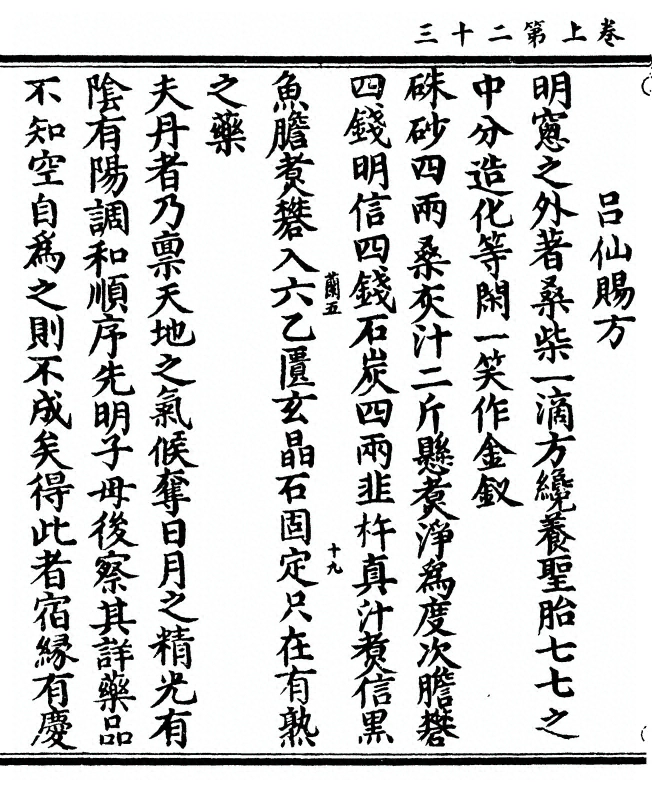 卷上第二十三
呂仙賜方
明窻之外著桑柴一滴方纔養聖胎七七之
中分造化等閑一笑作金釵
硃砂四兩桑灰汁二斤懸煑淨爲度次膽礬
四錢明信四錢石炭四兩韭杵真汁煑信黑
魚膽煑礬入六乙匱玄晶石固定只在有熟
蘭五
十九
之藥
夫丹者乃禀天地之氣候奪日月之精光有
陰有陽調和順序先明子母後察其詳藥品
不知空自爲之則不成矣得此者宿緣有慶